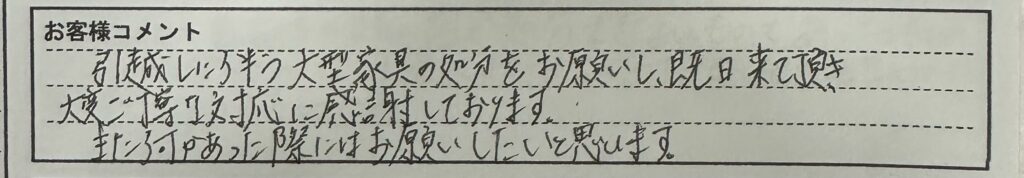 お客様コメント
引越しに伴う大型家具の処分をお願いし、即日来て頂き
大変ご丁寧な対応に感謝しております。
また何かあった際にはお願いしたいと思います。